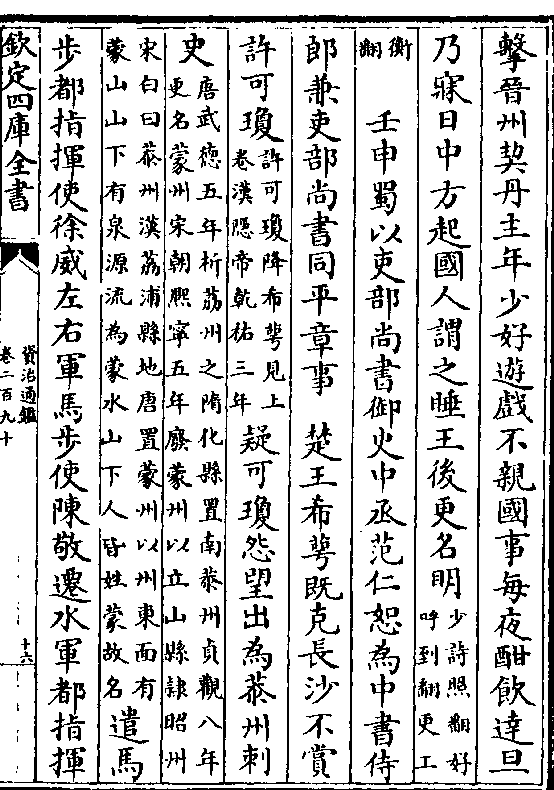 擊晉州契丹主年少好遊戲不親國事每夜酣飲達旦
乃寐日中方起國人謂之睡王後更名明
少詩照翻好
呼到翻更工
衡
翻
壬申蜀以吏部尚書御史中丞范仁恕為中書侍
郎兼吏部尚書同平章事　楚王希萼既克長沙不賞
許可瓊
許可瓊降希萼見上
卷漢隱帝乾祐三年
疑可瓊怨望出為恭州刺
史
唐武德五年析荔州之隋化縣置南恭州貞觀八年
更名蒙州宋朝熙寧五年廢蒙州以立山縣隸昭州
宋白曰恭州漢荔浦縣地唐置蒙州以州東面有
蒙山山下有泉源流為蒙水山下人皆姓蒙故名
遣馬
步都指揮使徐威左右軍馬步使陳敬遷水軍都指揮
欽定四庫全書
資治通鑑
卷二百九十
十六